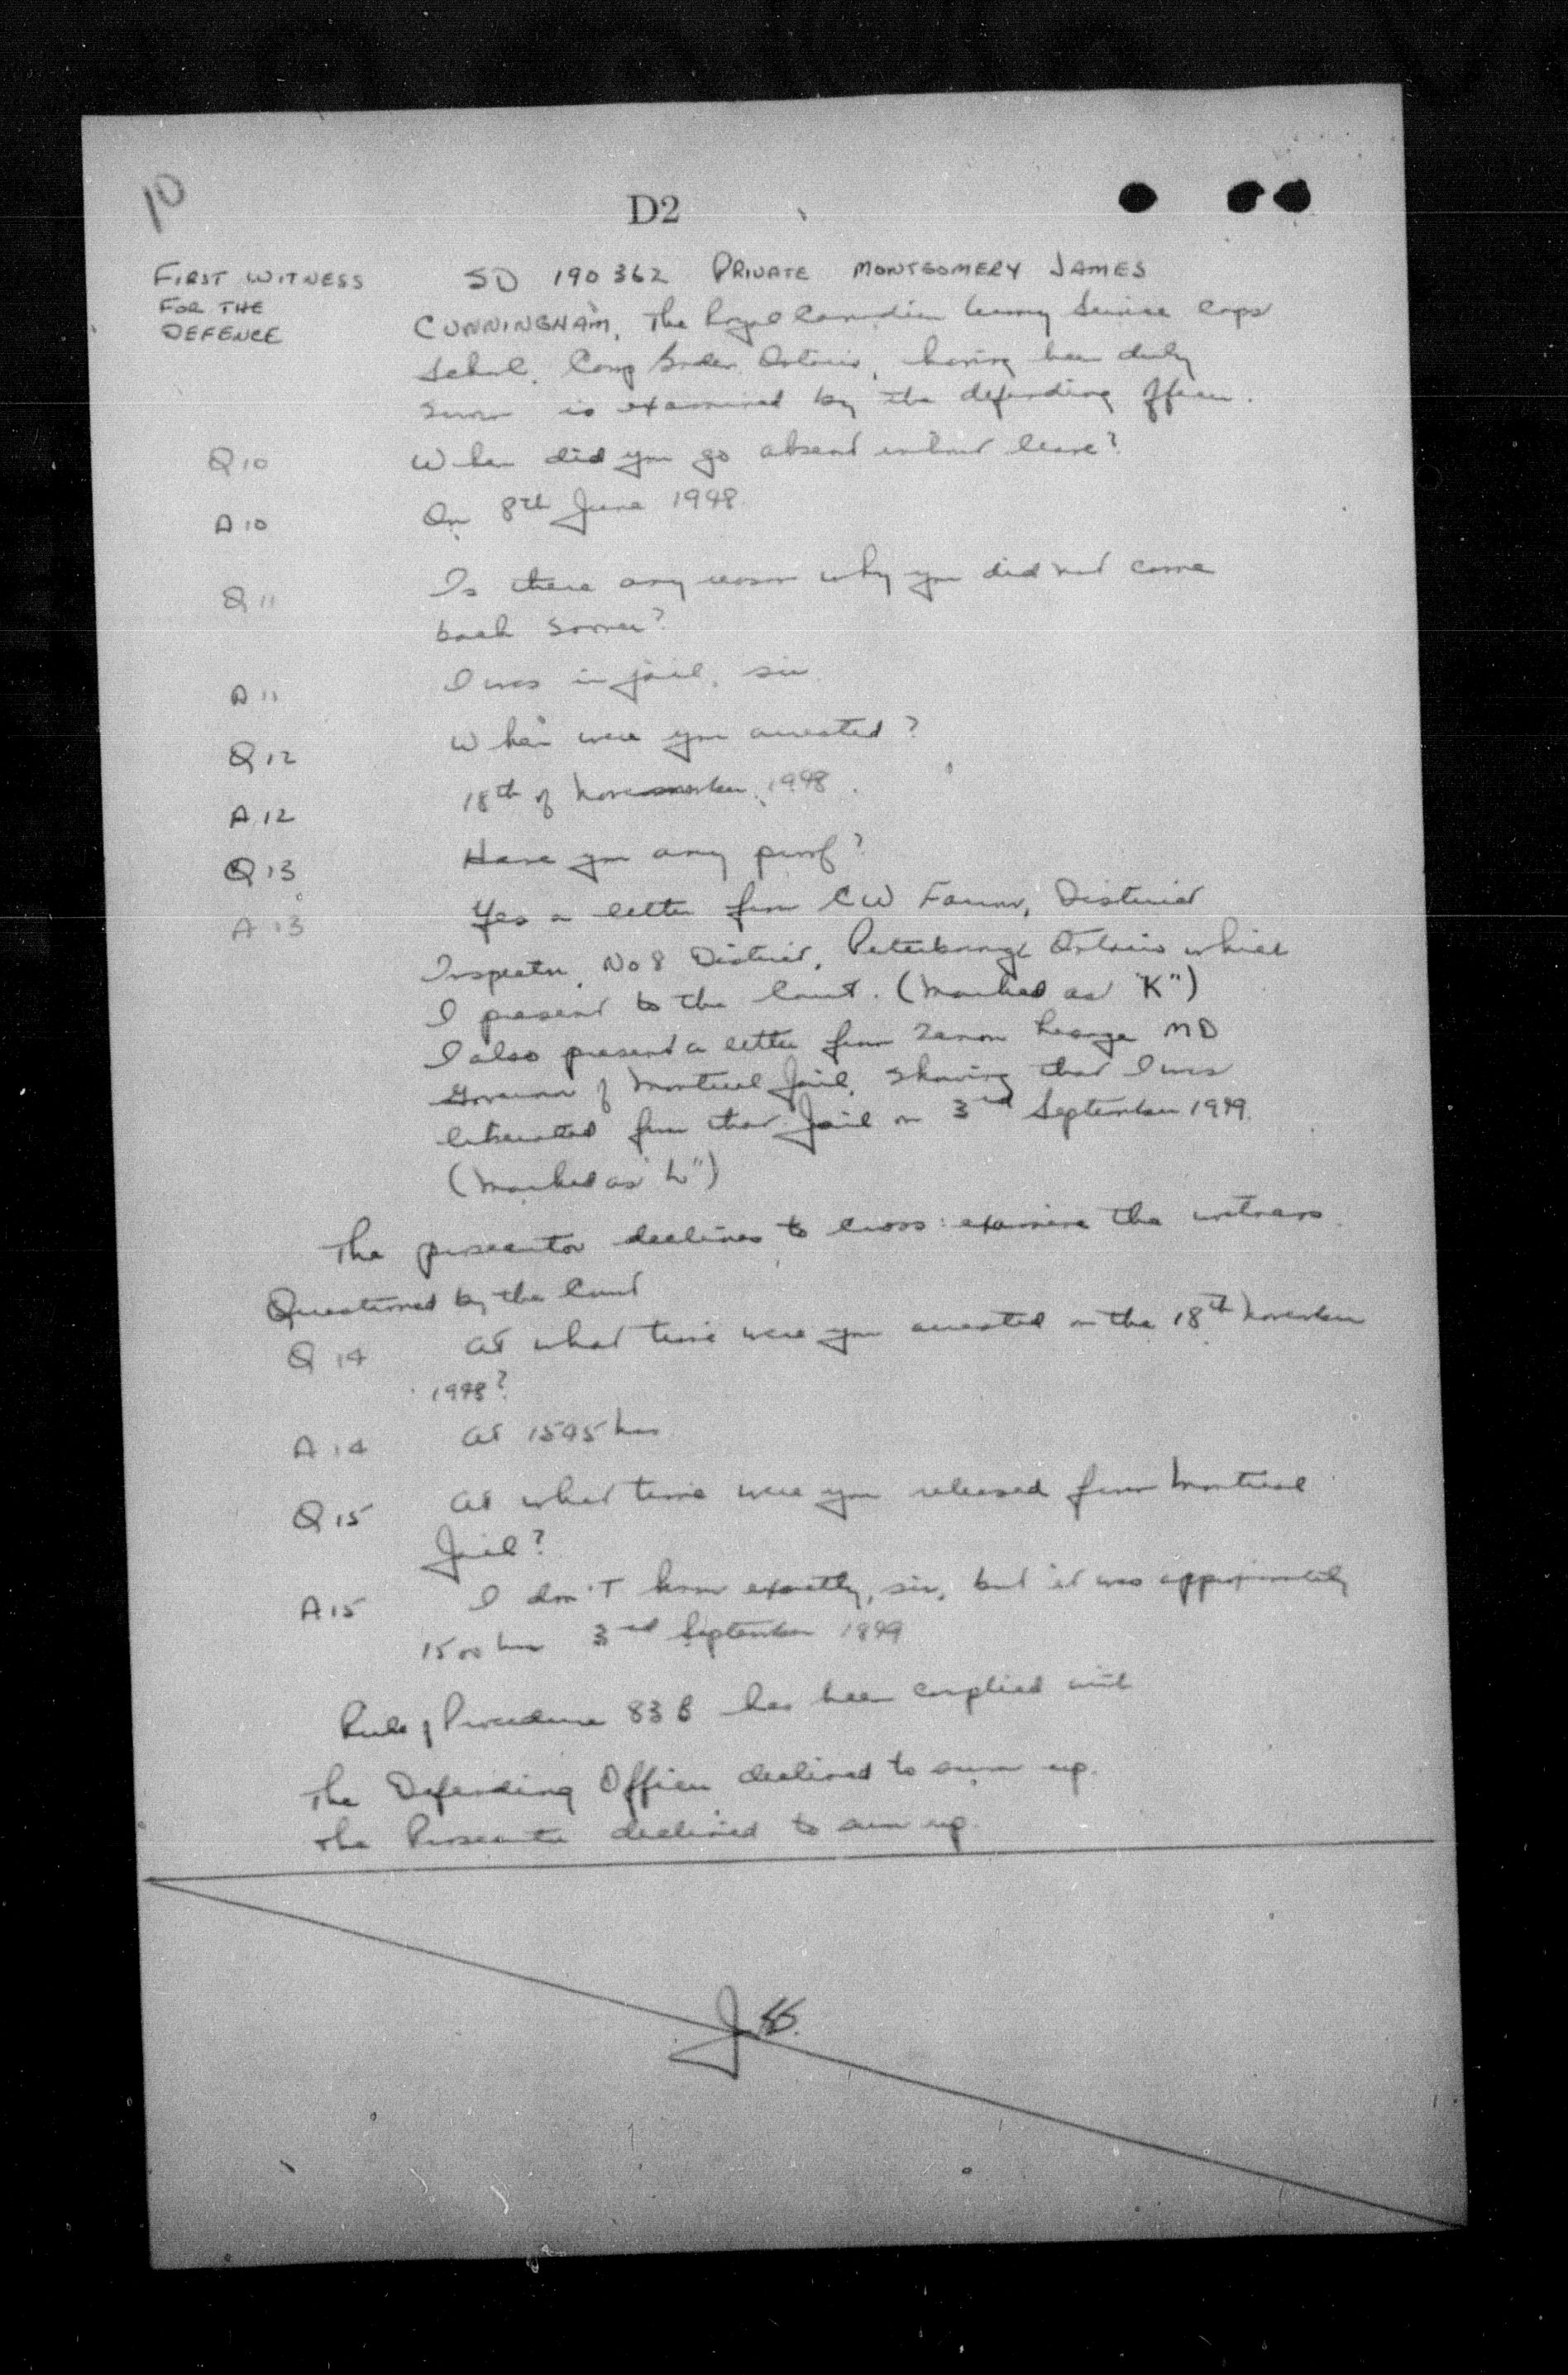 10
D2
FIRST WITNESS
FOR THE
DEFENCE
SD 190362 PRIVATE MONTGOMERY JAMES
CUNNINGHAM, The Royal Canadian Army Service Corps
School, Camp Borden Ontario, having been duly
sworn is examined by the defending officer.
Q 10 When did you go absent without leave?
A 10 On 8th June 1948.
Q 11 Is there any reason why you did not come
back sooner?
A 11 I was in jail, sir
Q 12 When were you arrested?
A 12 18th of November, 1948.
Q 13 Have you any proof?
A 13 Yes a letter from CW Farrow, District
Inspector, No 8 District, Peterborough Ontario which
I present to the Court. (Marked as "K")
I also present a letter from Zenon MD
Governor of Montreal Jail, showing that I was
liberated from that Jail on 3rd September 1949.
(Marked as "L")
The prosecutor declines to cross-examine the witness.
Questioned by the Court
Q 14 At what time were you arrested on the 18th November
1948?
A 14 At 1545 hrs
Q 15 At what time were you released from Montreal
Jail?
A 15 I don't know exactly, sir, but it was approximately
1500 hrs 3rd September 1949
Rule of Procedure 83 B has been complied with
The Defending Officer declined to sum up.
The Prosecutor declined to sum up.